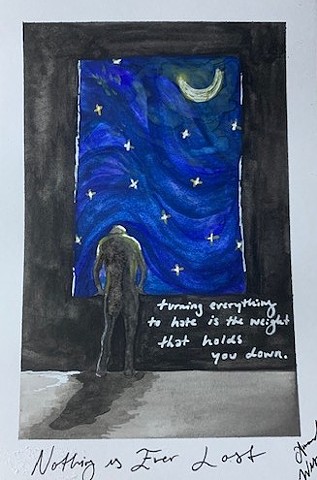 turning everything
to hate is the weight
that holds
you down.
Nothing is Ever Lost